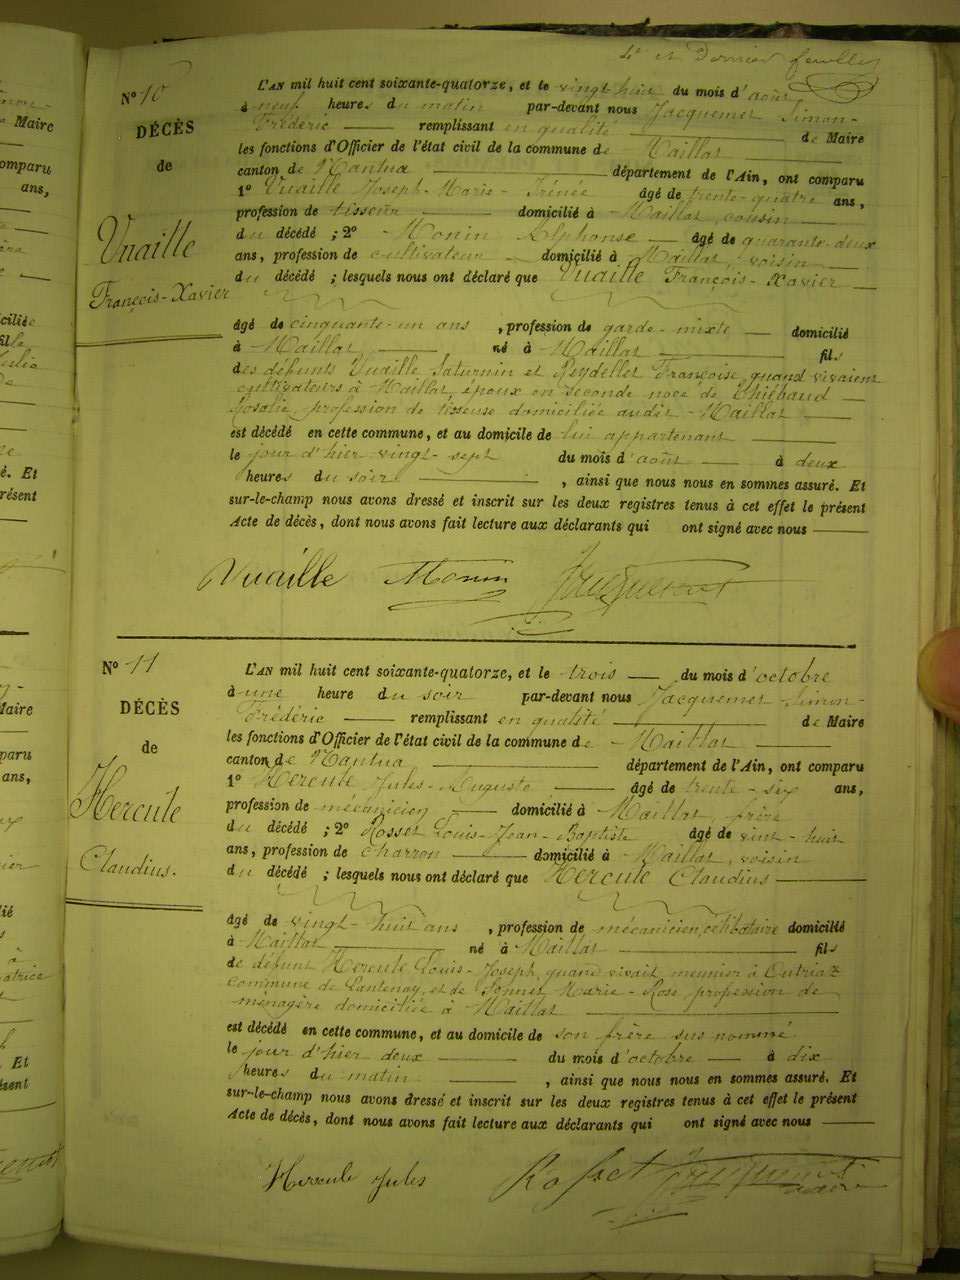 4e et Dernier feuillet
No 10
DÉCÈS
de
Vuaille
François-Xavier
L'AN mil huit cent soixante-quatorze, et le vingt huit du mois d'août
à neuf heures du matin par-devant nous Jacquemet Simon-
Frédéric remplissant en qualité de Maire
les fonctions d'Officier de l'état civil de la commune de Maillat
canton de Nantua département de l'Ain, ont comparu
1o Vuaille Joseph-Marie-Irénée âgé de trente-quatre ans,
profession de tisseur domicilié à Maillat, cousin
du décédé ; 2o Monin Alphonse âgé de quarante-deux
ans, profession de cultivateur domicilié à Maillat voisin
du décédé ; lesquels nous ont déclaré que Vuaille François-Xavier
âgé de cinquante-un ans , profession de garde-mixte domicilié
à Maillat né à Maillat fils
des défunts Vuaille Saturnin et Peydellet Françoise, quand vivaient
cultivateurs à Maillat, époux en seconde noce de Thiébaud
Rosalie, profession de tisseuse domiciliée audit Maillat
est décédé en cette commune, et au domicile de lui appartenant
le jour d'hier vingt-sept du mois d'août à deux
heures du soir , ainsi que nous nous en sommes assuré. Et
sur-le-champ nous avons dressé et inscrit sur les deux registres tenus à cet effet le présent
Acte de décès, dont nous avons fait lecture aux déclarants qui ont signé avec nous
Vuaille Monin Jacquemet
No 11
DÉCÈS
de
Hercule
Claudius.
L'AN mil huit cent soixante-quatorze, et le trois du mois d'octobre
à une heure du soir par-devant nous Jacquemet Simon-
Frédéric remplissant en qualité de Maire
les fonctions d'Officier de l'état civil de la commune de Maillat
canton de Nantua département de l'Ain, ont comparu
1o Hercule Jules-Auguste âgé de trente-six ans,
profession de mécanicien domicilié à Maillat, frère
du décédé ; 2o Rosset Louis-Jean-Baptiste âgé de vint-huit
ans, profession de charron domicilié à Maillat, voisin
du décédé ; lesquels nous ont déclaré que Hercule Claudius
âgé de vingt-huit ans , profession de mécanicien, célibataire domicilié
à Maillat né à Maillat fils
de défunt Hercule Louis-Joseph, quand vivait meunier à Outriaz
commune de Lantenay, et de Sonnet Marie-Rose, profession de
ménagère domiciliée à Maillat
est décédé en cette commune, et au domicile de son frère sus nommé
le jour d'hier deux du mois d'octobre à dix
heures du matin , ainsi que nous nous en sommes assuré. Et
sur-le-champ nous avons dressé et inscrit sur les deux registres tenus à cet effet le présent
Acte de décès, dont nous avons fait lecture aux déclarants qui ont signé avec nous
Hercule Jules Rosset Jacquemet
maire